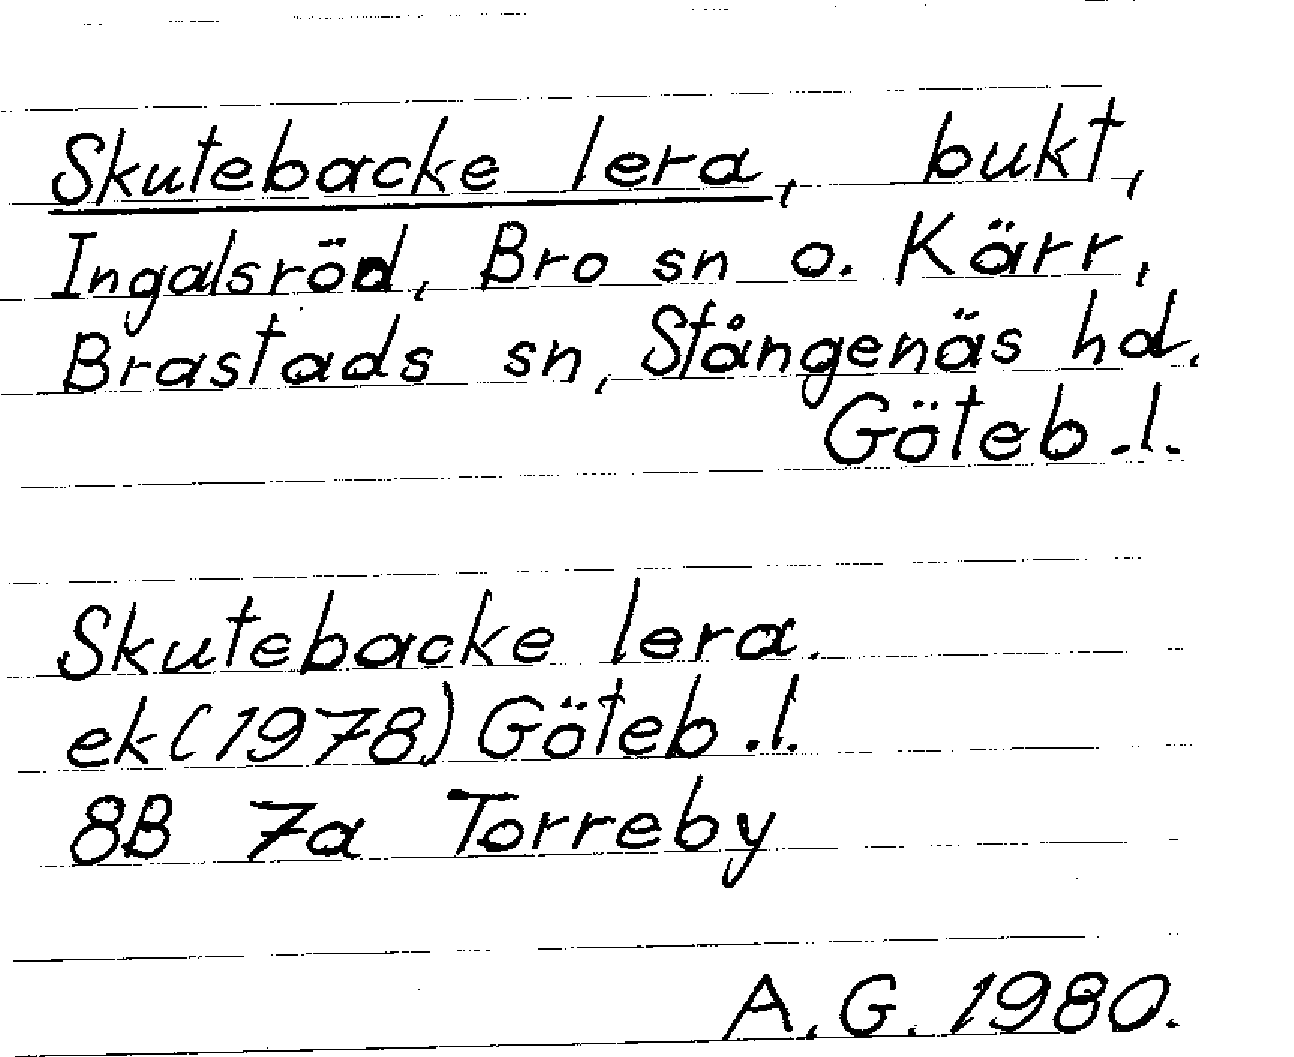 Skutebacke lera, bukt,
Ingalsröd, Bro sn o. Kärr,
Brastads sn, Stångenäs hd.
Göteb.l.
Skutebacke lera.
ek (1978) Göteb.l.
8B 7a Torreby
A.G. 1980.